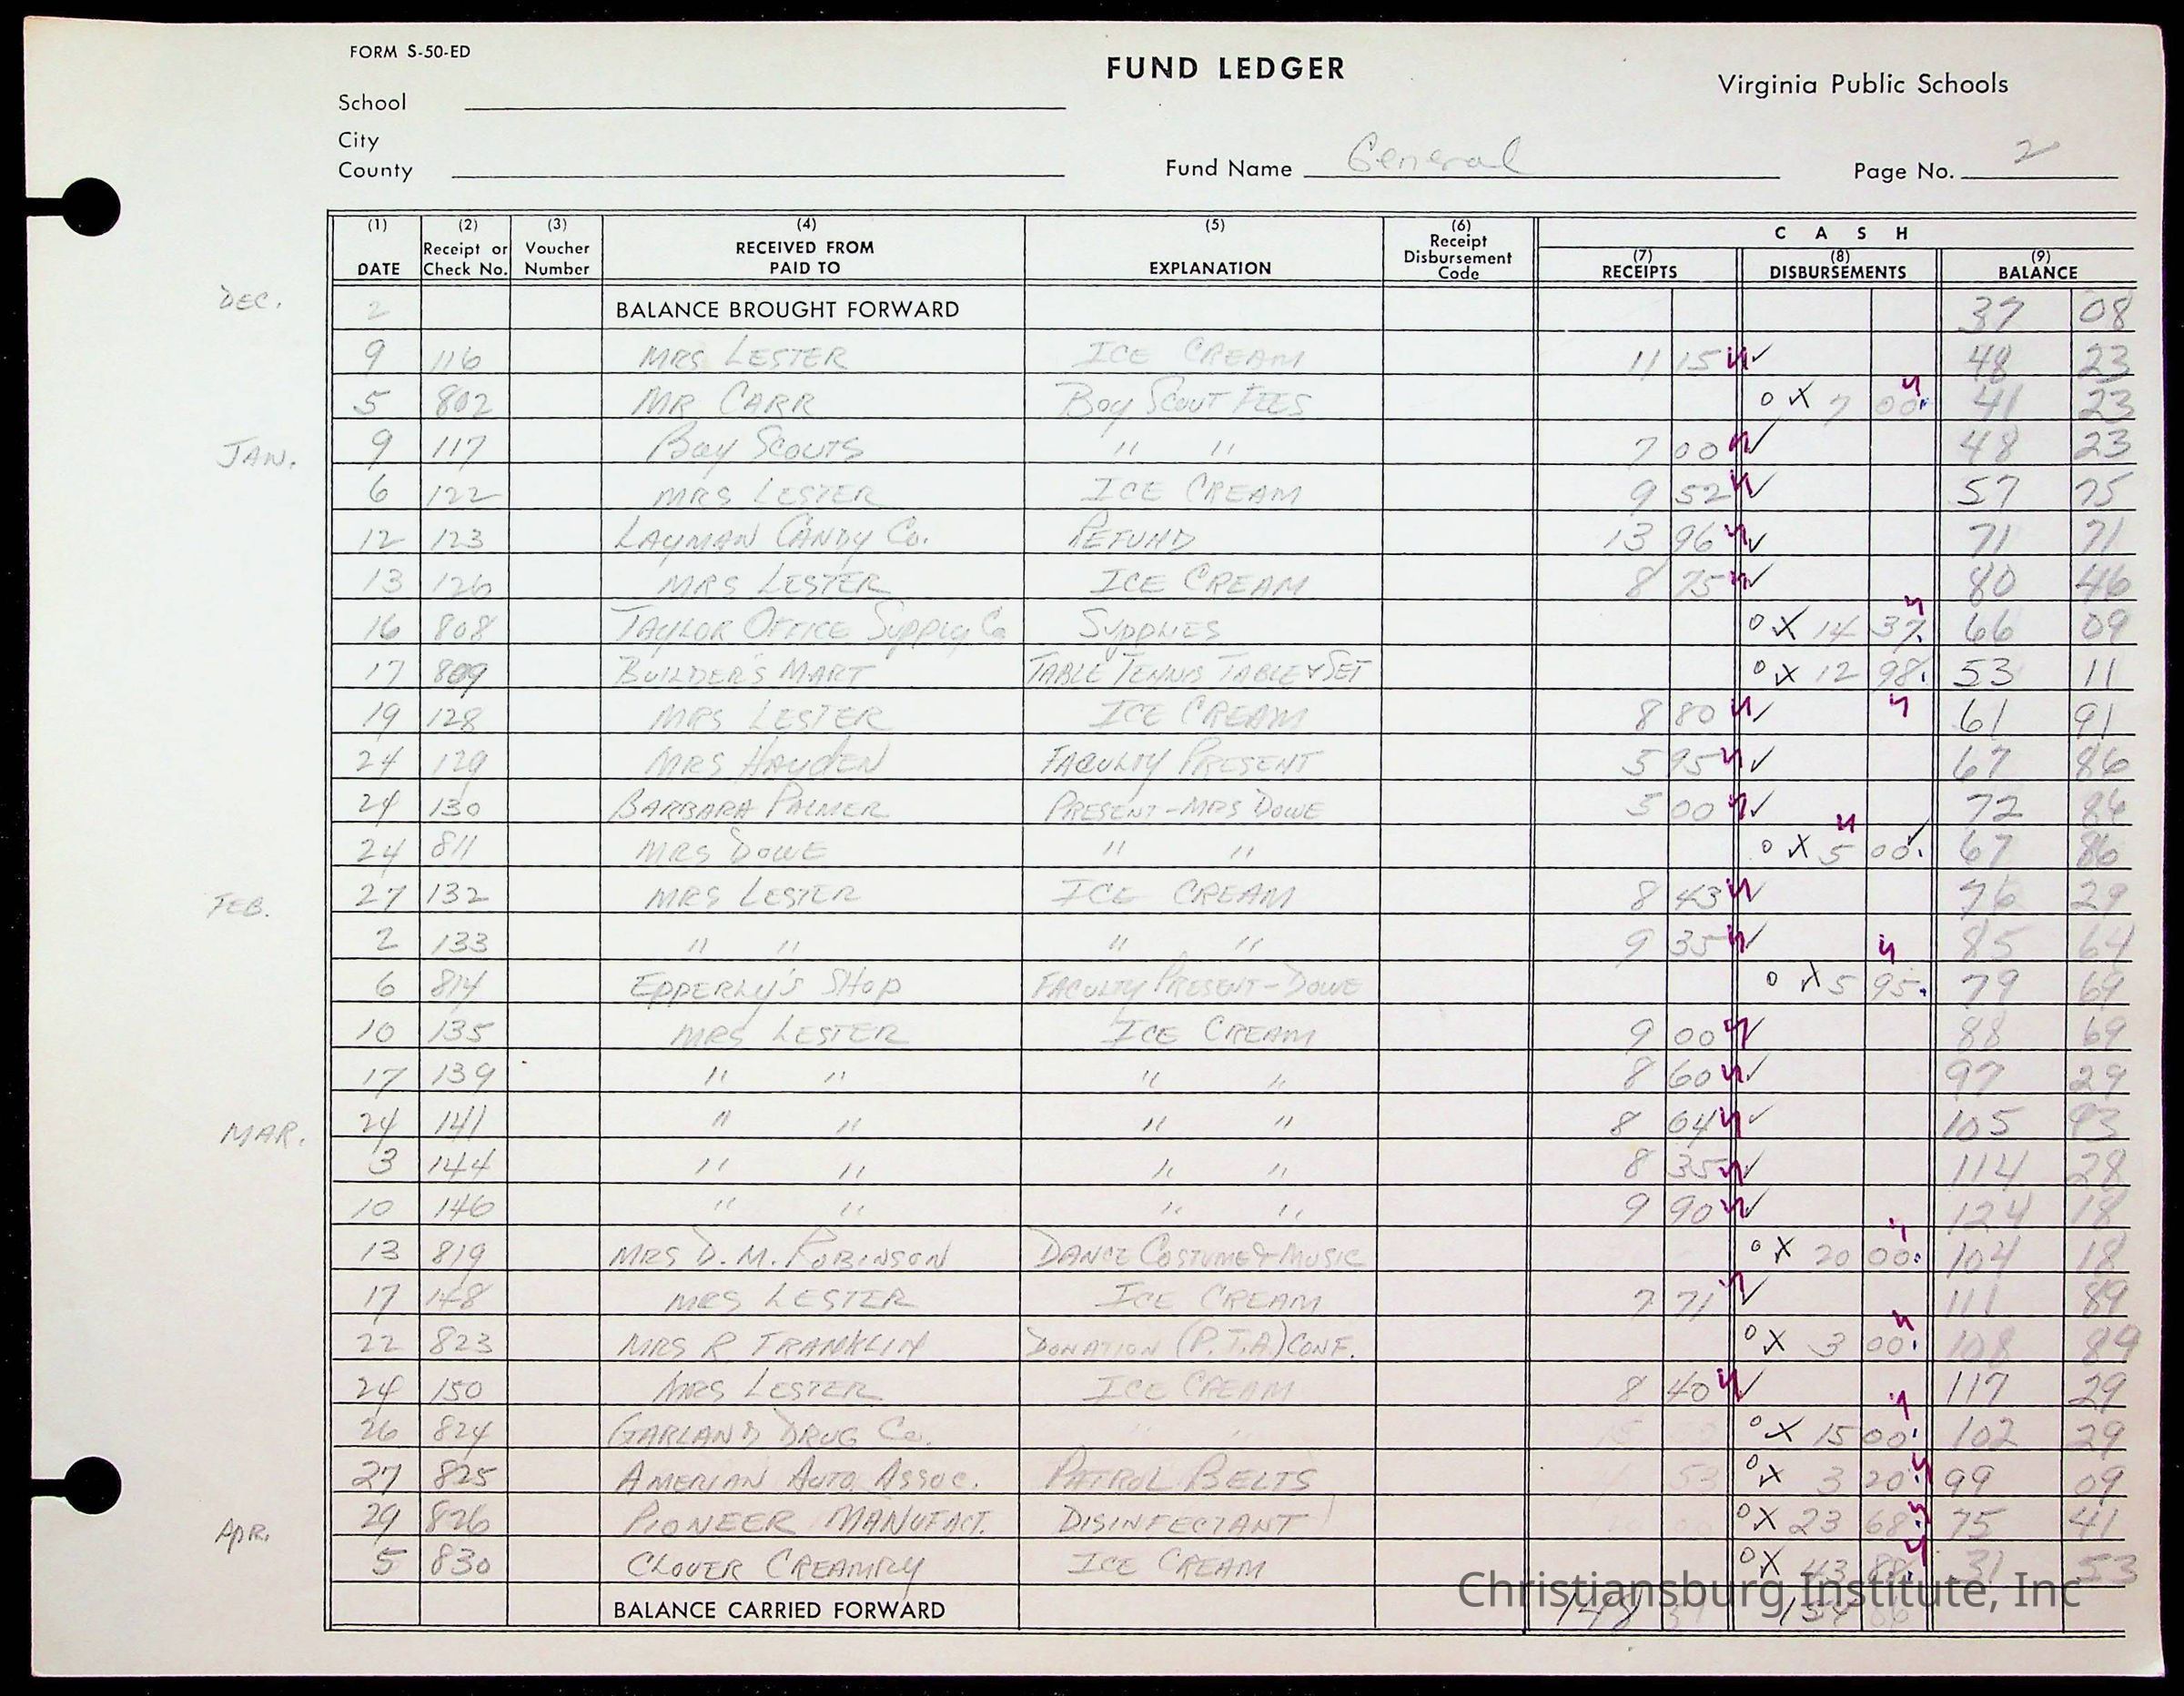 FORM S-50-ED
FUND LEDGER
Virginia Public Schools
School
City
County
Fund Name General
Page No. 2
(1) DATE (2) Receipt or Check No. (3) Voucher Number (4) RECEIVED FROM PAID TO (5) EXPLANATION (6) Receipt Disbursement Code CASH (7) RECEIPTS (8) DISBURSEMENTS (9) BALANCE
DEC. 2 BALANCE BROUGHT FORWARD 37 08
9 116 MRS LESTER ICE CREAM 11 15 ✓ 48 23
5 802 MR CARR BOY SCOUT FEES o X 7 00 41 23
JAN. 9 117 BOY SCOUTS " " 7 00 ✓ 48 23
6 122 MRS LESTER ICE CREAM 9 52 ✓ 57 75
12 123 LAYMAN CANDY CO. REFUND 13 96 ✓ 71 71
13 126 MRS LESTER ICE CREAM 8 75 ✓ 80 46
16 808 TAYLOR OFFICE SUPPLY CO SUPPLIES o X 14 37 66 09
17 809 BUILDER'S MART TABLE TENNIS TABLE & SET o X 12 98 53 11
19 128 MRS LESTER ICE CREAM 8 80 ✓ 61 91
24 129 MRS HAYDEN FACULTY PRESENT 5 95 ✓ 67 86
24 130 BARBARA PALMER PRESENT-MRS DOWE 5 00 ✓ 72 86
24 811 MRS DOWE " " o X 5 00 ✓ 67 86
FEB. 27 132 MRS LESTER ICE CREAM 8 43 ✓ 76 29
2 133 " " " " 9 35 ✓ 85 64
6 814 EPPERLY'S SHOP FACULTY PRESENT-DOWE o X 5 95 79 69
10 135 MRS LESTER ICE CREAM 9 00 ✓ 88 69
17 139 " " " " 8 60 ✓ 97 29
MAR. 24 141 " " " " 8 64 ✓ 105 93
3 144 " " " " 8 35 ✓ 114 28
10 146 " " " " 9 90 ✓ 124 18
13 819 MRS D. M. ROBINSON DANCE COSTUME & MUSIC o X 20 00 104 18
17 148 MRS LESTER ICE CREAM 7 71 ✓ 111 89
22 823 MRS R FRANKLIN DONATION (P.T.A.) CONF. o X 3 00 108 89
24 150 MRS LESTER ICE CREAM 8 40 ✓ 117 29
26 824 GARLAND DRUG Co. o X 15 00 102 29
27 825 AMERIAN AUTO ASSOC. PATROL BELTS o X 3 20 99 09
APR. 29 826 PIONEER MANUFACT. DISINFECTANT o X 23 68 75 41
5 830 CLOVER CREAMRLY ICE CREAM o X 43 88 31 53
BALANCE CARRIED FORWARD 148 154
Christiansburg Institute, Inc